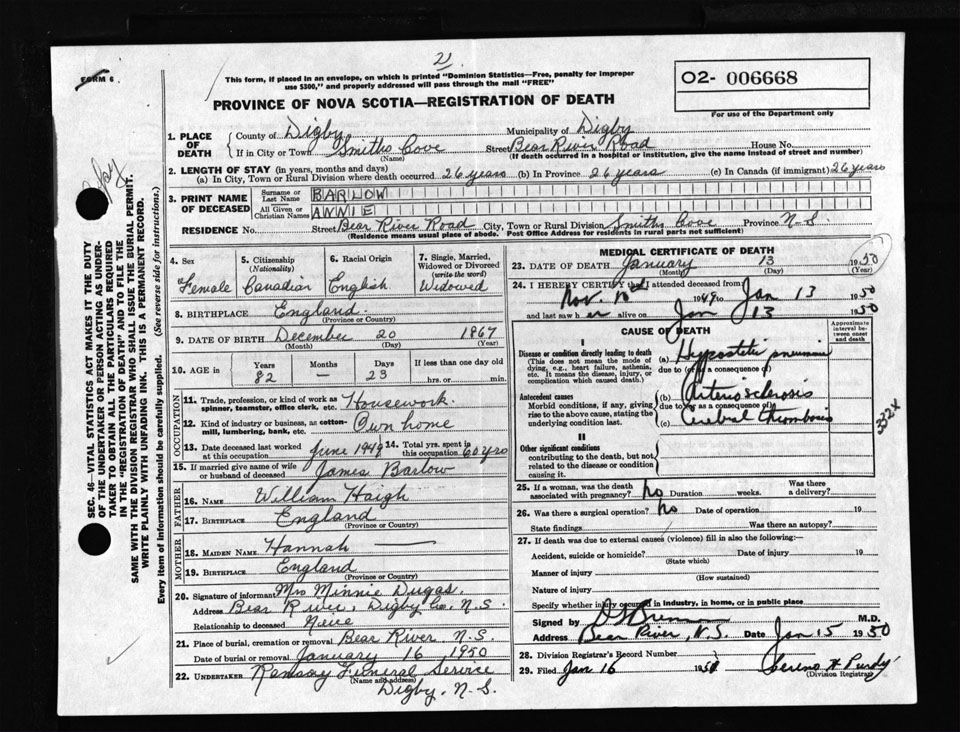 21
FORM 6
This form, if placed in an envelope, on which is printed "Dominion Statistics—Free, penalty for improper
use $300," and properly addressed will pass through the mail "FREE"
02- 006668
For use of the Department only
PROVINCE OF NOVA SCOTIA—REGISTRATION OF DEATH
1. PLACE OF DEATH
County of Digby Municipality of Digby
If in City or Town Smiths Cove Street Bear River Road House No.
(Name) (If death occurred in a hospital or institution, give the name instead of street and number)
2. LENGTH OF STAY (in years, months and days)
(a) In City, Town or Rural Division where death occurred 26 years (b) In Province 26 years (c) In Canada (if immigrant) 26 years
3. PRINT NAME OF DECEASED
Surname or Last Name BARLOW
All Given or Christian Names ANNIE
RESIDENCE No. Street Bear River Road City, Town or Rural Division Smiths Cove Province N.S.
(Residence means usual place of abode. Post Office Address for residents in rural parts not sufficient)
4. Sex Female
5. Citizenship (Nationality) Canadian
6. Racial Origin English
7. Single, Married, Widowed or Divorced (write the word) Widowed
8. BIRTHPLACE England
(Province or Country)
9. DATE OF BIRTH December 20 1867
(Month) (Day) (Year)
10. AGE in Years Months Days If less than one day old
82 — 23 hrs. or min.
OCCUPATION
11. Trade, profession, or kind of work as spinner, teamster, office clerk, etc. Housework.
12. Kind of industry or business, as cotton-mill, lumbering, bank, etc. Own home
13. Date deceased last worked at this occupation June 1949
14. Total yrs. spent in this occupation 60 yrs
15. If married give name of wife or husband of deceased James Barlow
FATHER
16. NAME William Haigh
17. BIRTHPLACE England
(Province or Country)
MOTHER
18. MAIDEN NAME Hannah —
19. BIRTHPLACE England
(Province or Country)
20. Signature of informant Mrs Minnie Dugas.
Address Bear River, Digby Co., N.S.
Relationship to deceased Neice
21. Place of burial, cremation or removal Bear River N.S.
Date of burial or removal January 16 1950
22. UNDERTAKER Ramsay Funeral Service
(Name and address)
Digby, N.S.
MEDICAL CERTIFICATE OF DEATH
23. DATE OF DEATH January 13 1950
(Month) (Day) (Year)
24. I HEREBY CERTIFY that I attended deceased from:
Nov. 10 1949 to Jan 13 1950
and last saw her alive on Jan 13 1950
CAUSE OF DEATH
Approximate interval between onset and death
I
Disease or condition directly leading to death
(This does not mean the mode of dying, e.g., heart failure, asthenia, etc. It means the disease, injury, or complication which caused death.)
(a) Hypostatic pneumonia
due to (or as a consequence of)
Antecedent causes
Morbid conditions, if any, giving rise to the above cause, stating the underlying condition last.
(b) Arteriosclerosis
due to (or as a consequence of)
(c) Cerebral thrombosis
332X
II
Other significant conditions
contributing to the death, but not related to the disease or condition causing it.
25. If a woman, was the death associated with pregnancy? No Duration weeks. Was there a delivery?
26. Was there a surgical operation? No Date of operation 19
State findings Was there an autopsy?
27. If death was due to external causes (violence) fill in also the following:—
Accident, suicide or homicide? Date of injury 19
(State which)
Manner of injury
(How sustained)
Nature of injury
Specify whether injury occurred in industry, in home, or in public place
Signed by M.D.
Address Bear River, N.S. Date Jan 15 1950
28. Division Registrar's Record Number
29. Filed Jan 16 Sereno H Purdy
(Division Registrar)
SEC. 46—VITAL STATISTICS ACT MAKES IT THE DUTY
OF THE UNDERTAKER OR PERSON ACTING AS UNDER-
TAKER TO OBTAIN ALL THE PARTICULARS REQUIRED
IN THE "REGISTRATION OF DEATH" AND TO FILE THE
SAME WITH THE DIVISION REGISTRAR WHO SHALL ISSUE THE BURIAL PERMIT.
WRITE PLAINLY WITH UNFADING INK. THIS IS A PERMANENT RECORD.
Every item of information should be carefully supplied. (See reverse side for instructions.)